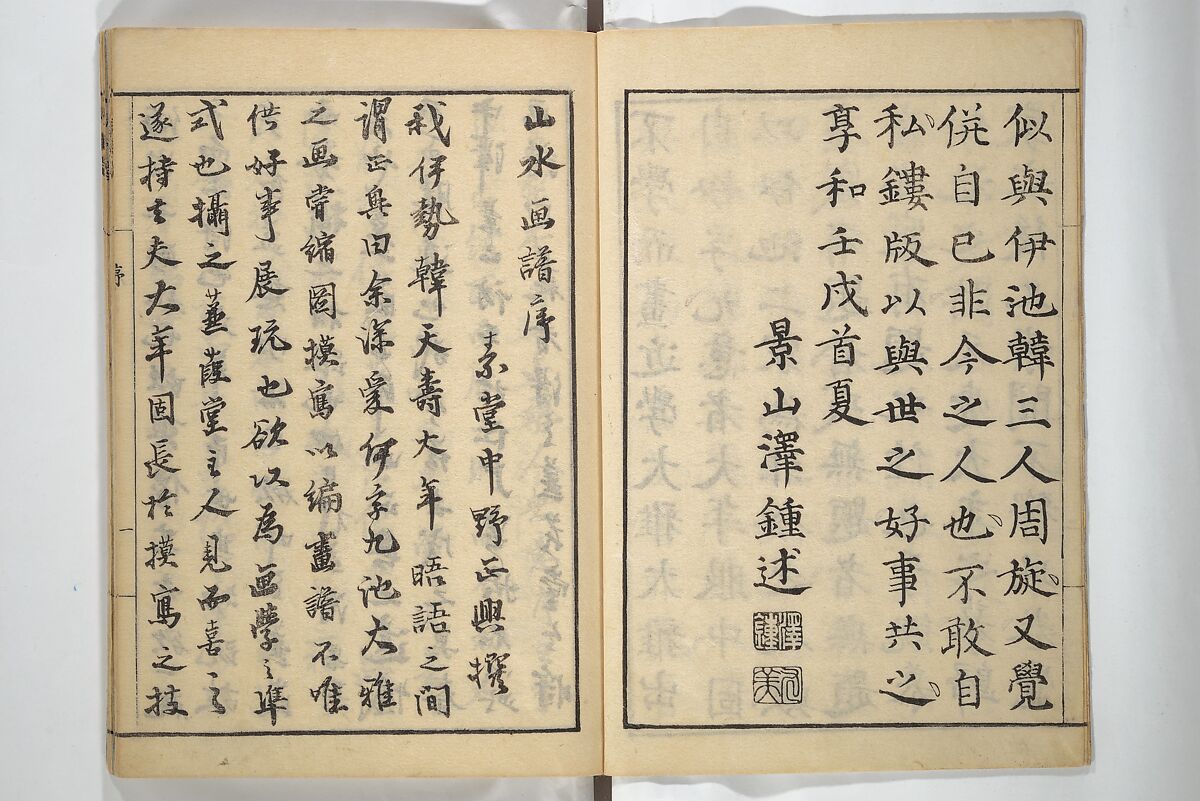 似與伊池韓三人周旋又覺
併自己非今之人也不敢自
私鏤版以與世之好事共之
享和壬戌首夏
景山澤鍾述
山水画譜序
素堂中野正興撰
我伊勢韓天壽大年晤語之間
謂正興曰余深愛伊孚九池大雅
之画嘗縮圖摸寫以編畫譜不唯
供好事展玩也欲以為画學之準
式也攝之蒹葭堂主人見而喜之
遂持去夫大年固長於摸寫之技
序
一